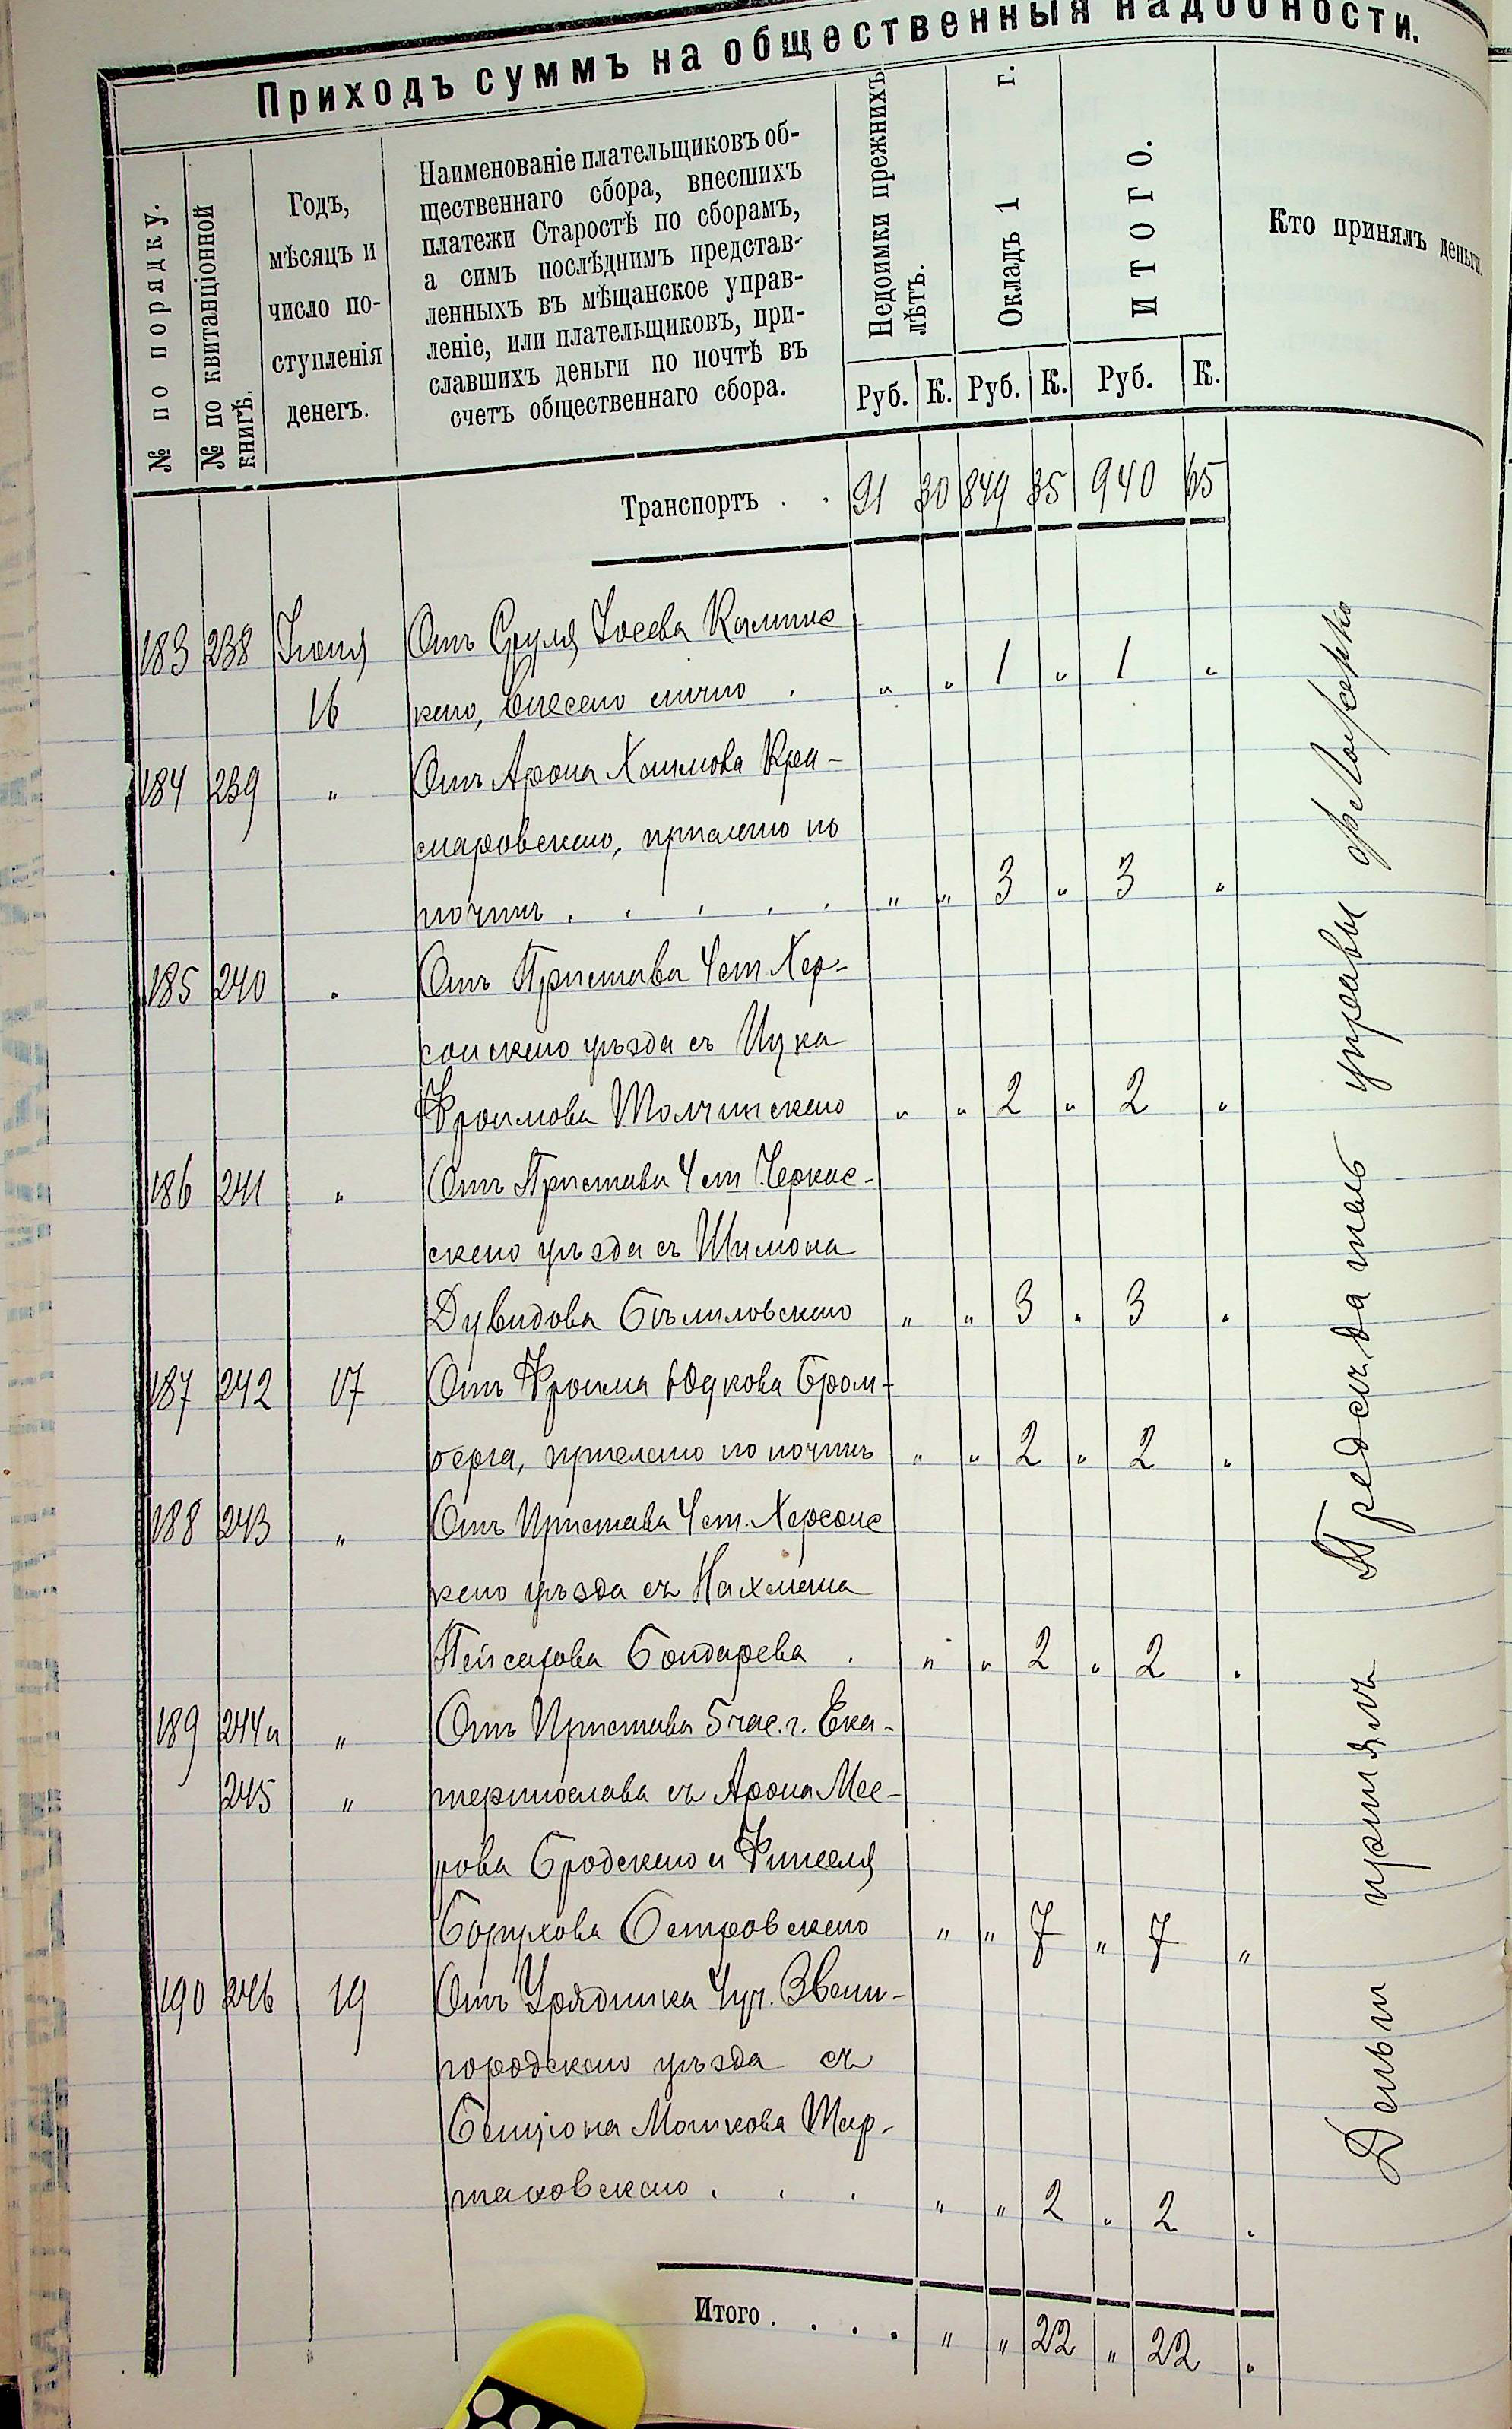 Приходъ суммъ на общественныя надобности.
№ по порядку.
№ по квитанціонной
книгѣ.
Годъ,
мѣсяцъ и
число по-
ступленія
денегъ.
Наименованіе плательщиковъ об-
щественнаго сбора, внесшихъ
платежи Старостѣ по сборамъ,
а симъ послѣднимъ представ-
ленныхъ въ мѣщанское управ-
леніе, или плательщиковъ, при-
славшихъ деньги по почтѣ въ
счетъ общественнаго сбора.
Недоимки прежнихъ
лѣтъ.
Окладъ 1 г.
ИТОГО.
Кто принялъ деньги.
Руб. К. Руб. К. Руб. К.
Транспортъ . . 91 30 849 35 940 65
183 238 Іюня Отъ Сруля Іосева Калинс
16 каго, внесено лично . " " 1 " 1 "
184 239 " Отъ Арона Хаимова Кра-
снаровскаго, прислано по
почтѣ . . . . . " " 3 " 3 "
185 240 " Отъ Пристава 4 ст. Хер-
сонскаго уѣзда съ Ицка
Фроимова Толчинскаго " " 2 " 2 "
186 241 " Отъ Пристава 4 ст Черкас-
скаго уѣзда съ Шимона
Дувидова Бѣлиловскаго " " 3 " 3 "
187 242 17 Отъ Фроима Юдкова Бром-
берга, прислано по почтѣ " " 2 " 2 "
188 243 " Отъ Пристава 4 ст. Херсонс
каго уѣзда съ Нахмана
Пейсахова Бондарева . " " 2 " 2 "
189 244 и " Отъ Пристава 5 час. г. Ека-
245 " теринослава съ Арона Мее-
рова Бродскаго и Финкеля
Борухова Островскаго " " 7 " 7 "
190 246 19 Отъ Урядника 4 уч. Звени-
городскаго уѣзда съ
Бенціона Мошкова Тар-
таковскаго . . . " " 2 " 2 "
Итого . . . . " " 22 " 22 "
Деньги принялъ Предсѣдатель управы